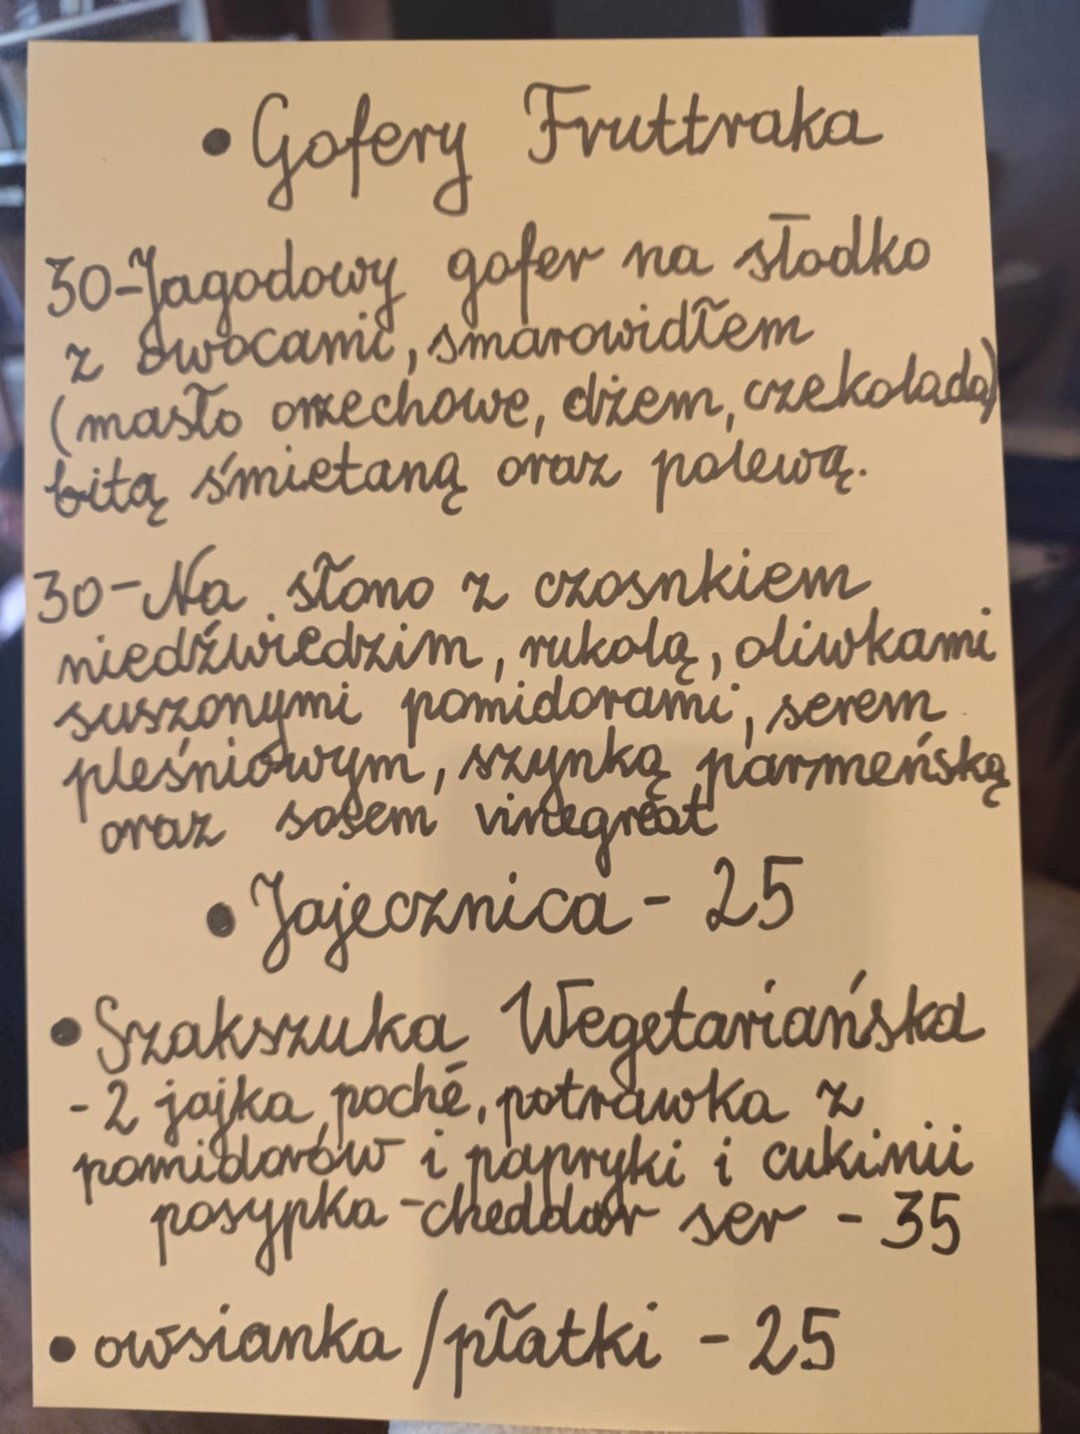 • Gofery Fruttraka
30-Jagodowy gofer na słodko
z owocami, smarowidłem
(masło orzechowe, dżem, czekolada)
bitą śmietaną oraz polewą.
30-Na słono z czosnkiem
niedźwiedzim, rukolą, oliwkami
suszonymi pomidorami, serem
pleśniowym, szynką parmeńską
oraz sosem vinegreat
• Jajecznica - 25
• Szakszuka Wegetariańska
- 2 jajka poché, potrawka z
pomidorów i papryki i cukinii
posypka - cheddar ser - 35
• owsianka /płatki - 25